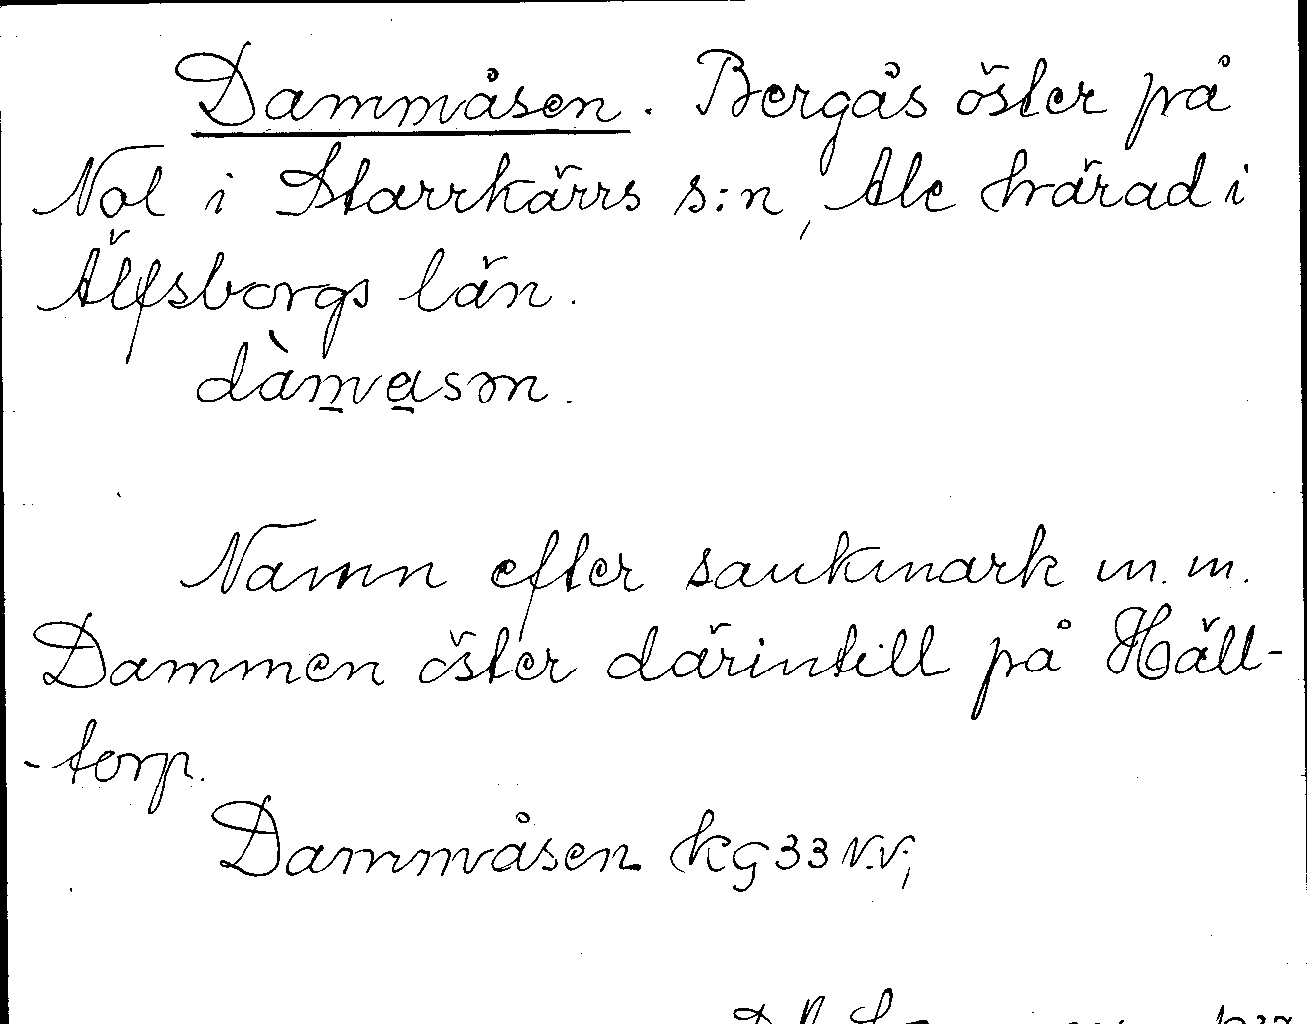 Dammåsen. Bergås öster på
Nol i Starrkärrs s:n, Ale härad i
Älfsborgs län.
dàmåsən.
Namn efter sankmark m. m.
Dammen öster därintill på Häll-
-torp.
Dammåsen kg 33 N.V;